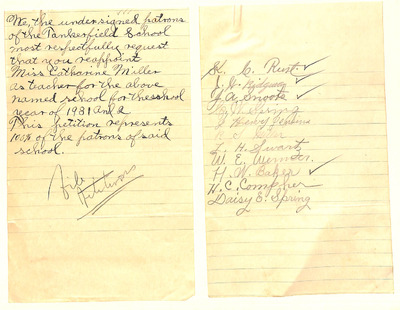 We, the undersigned patrons
of the Tankerfield School
most respectfully request
that you reappoint
Miss Catharine Miller
as teacher for the above
named school for the school
year of 1931 and 2
This petition represents
100% of the patrons of said
school.
File
Petitions
C. Runt.
J. W. Ridgway
J. A. Snoots
Spring
Harvey Jenkins
L. H. Swartz
W. E. Wenner.
H. W. Baker
H. C. Compher
Daisy E. Spring